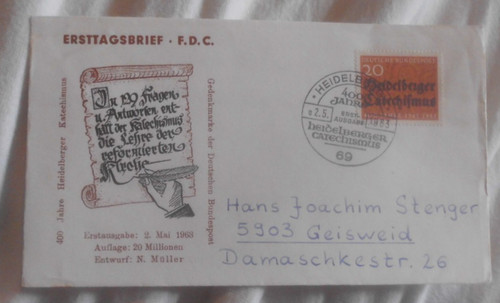 ERSTTAGSBRIEF · F.D.C.
400 Jahre Heidelberger Katechismus
In 129 Fragen
u. Antworten ent-
hält der Katechismus
die Lehre der
reformierten
Kirche
Gedenkmarke der Deutschen Bundespost
Erstausgabe: 2. Mai 1963
Auflage: 20 Millionen
Entwurf: N. Müller
DEUTSCHE BUNDESPOST
20
Heidelberger
Catechismus
HEIDELBERG
400
JAHRE
ERST-
AUSGABE
2.5. 1963
heidelberger
catechismus
69
Hans Joachim Stenger
5903 Geisweid
Damaschkestr. 26